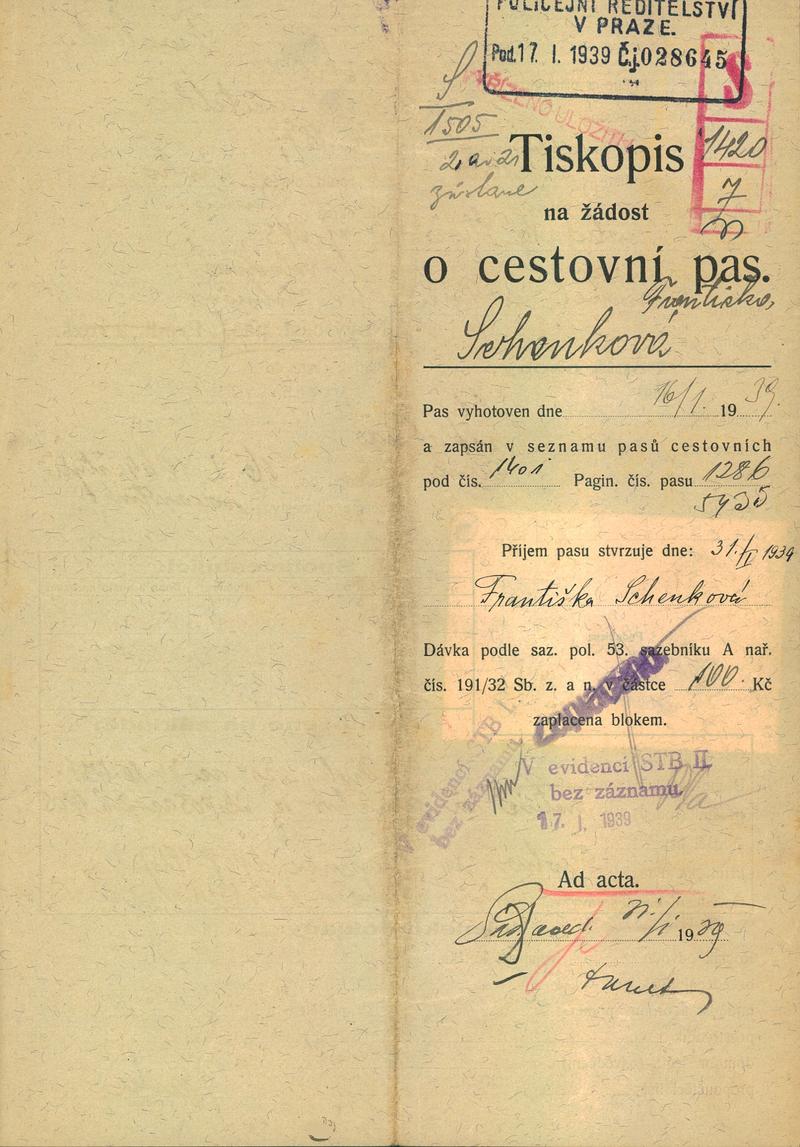 POLICEJNÍ ŘEDITELSTVÍ
V PRAZE.
Pod. 17. I. 1939 Čj. 028645
S
S
1505
2, a, 21
zůstane
1420
7
Tiskopis
na žádost
o cestovní pas.
Františka,
Schenková
Pas vyhotoven dne 16/1. 1939.
a zapsán v seznamu pasů cestovních
pod čís. 1401 Pagin. čís. pasu 1286
5935
Příjem pasu stvrzuje dne: 31./I 1939
Františka Schenková
Dávka podle saz. pol. 53. sazebníku A nař.
čís. 191/32 Sb. z. a n. v částce 100.- Kč
zaplacena blokem.
V evidenci STB I.
bez záznamu
V evidenci STB II.
bez záznamu.
17. I. 1939
Ad acta.
31./I 1939